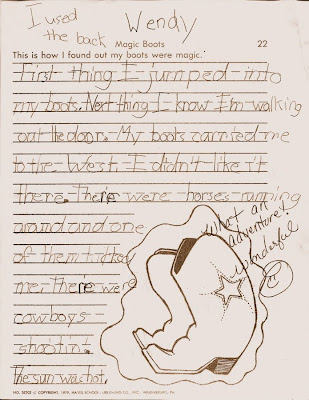 I used
the back
Wendy
Magic Boots
22
This is how I found out my boots were magic.
First thing I jumped into
my boots. Next thing I know I'm walking
out the door. My boots carried me
to the West. I didn't like it
there. There were horses running
around and one
of them kicked
me. There were
cowboys
shooting.
The sun was hot.
What an
adventure!
Wonderful
NO. 30703 © COPYRIGHT, 1979, HAYES SCHOOL PUBLISHING CO., INC., WILKINSBURG, PA.